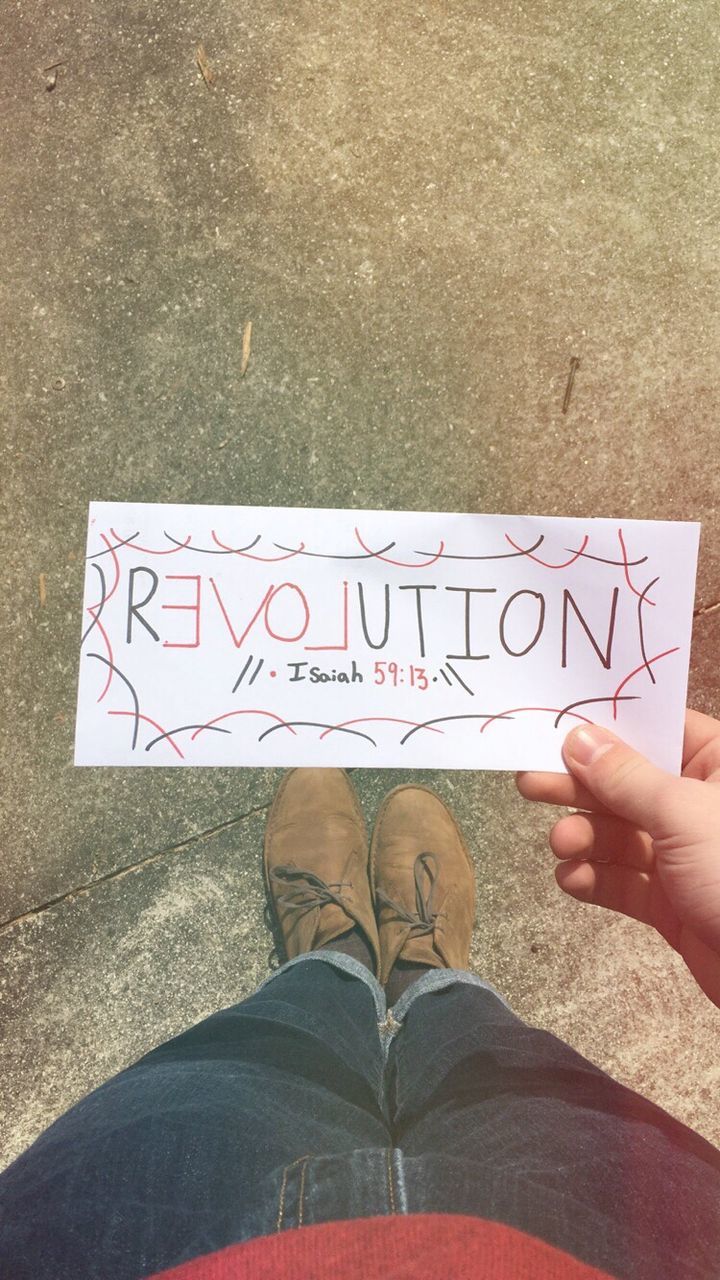 REVOLUTION
//• Isaiah 59:13.\\